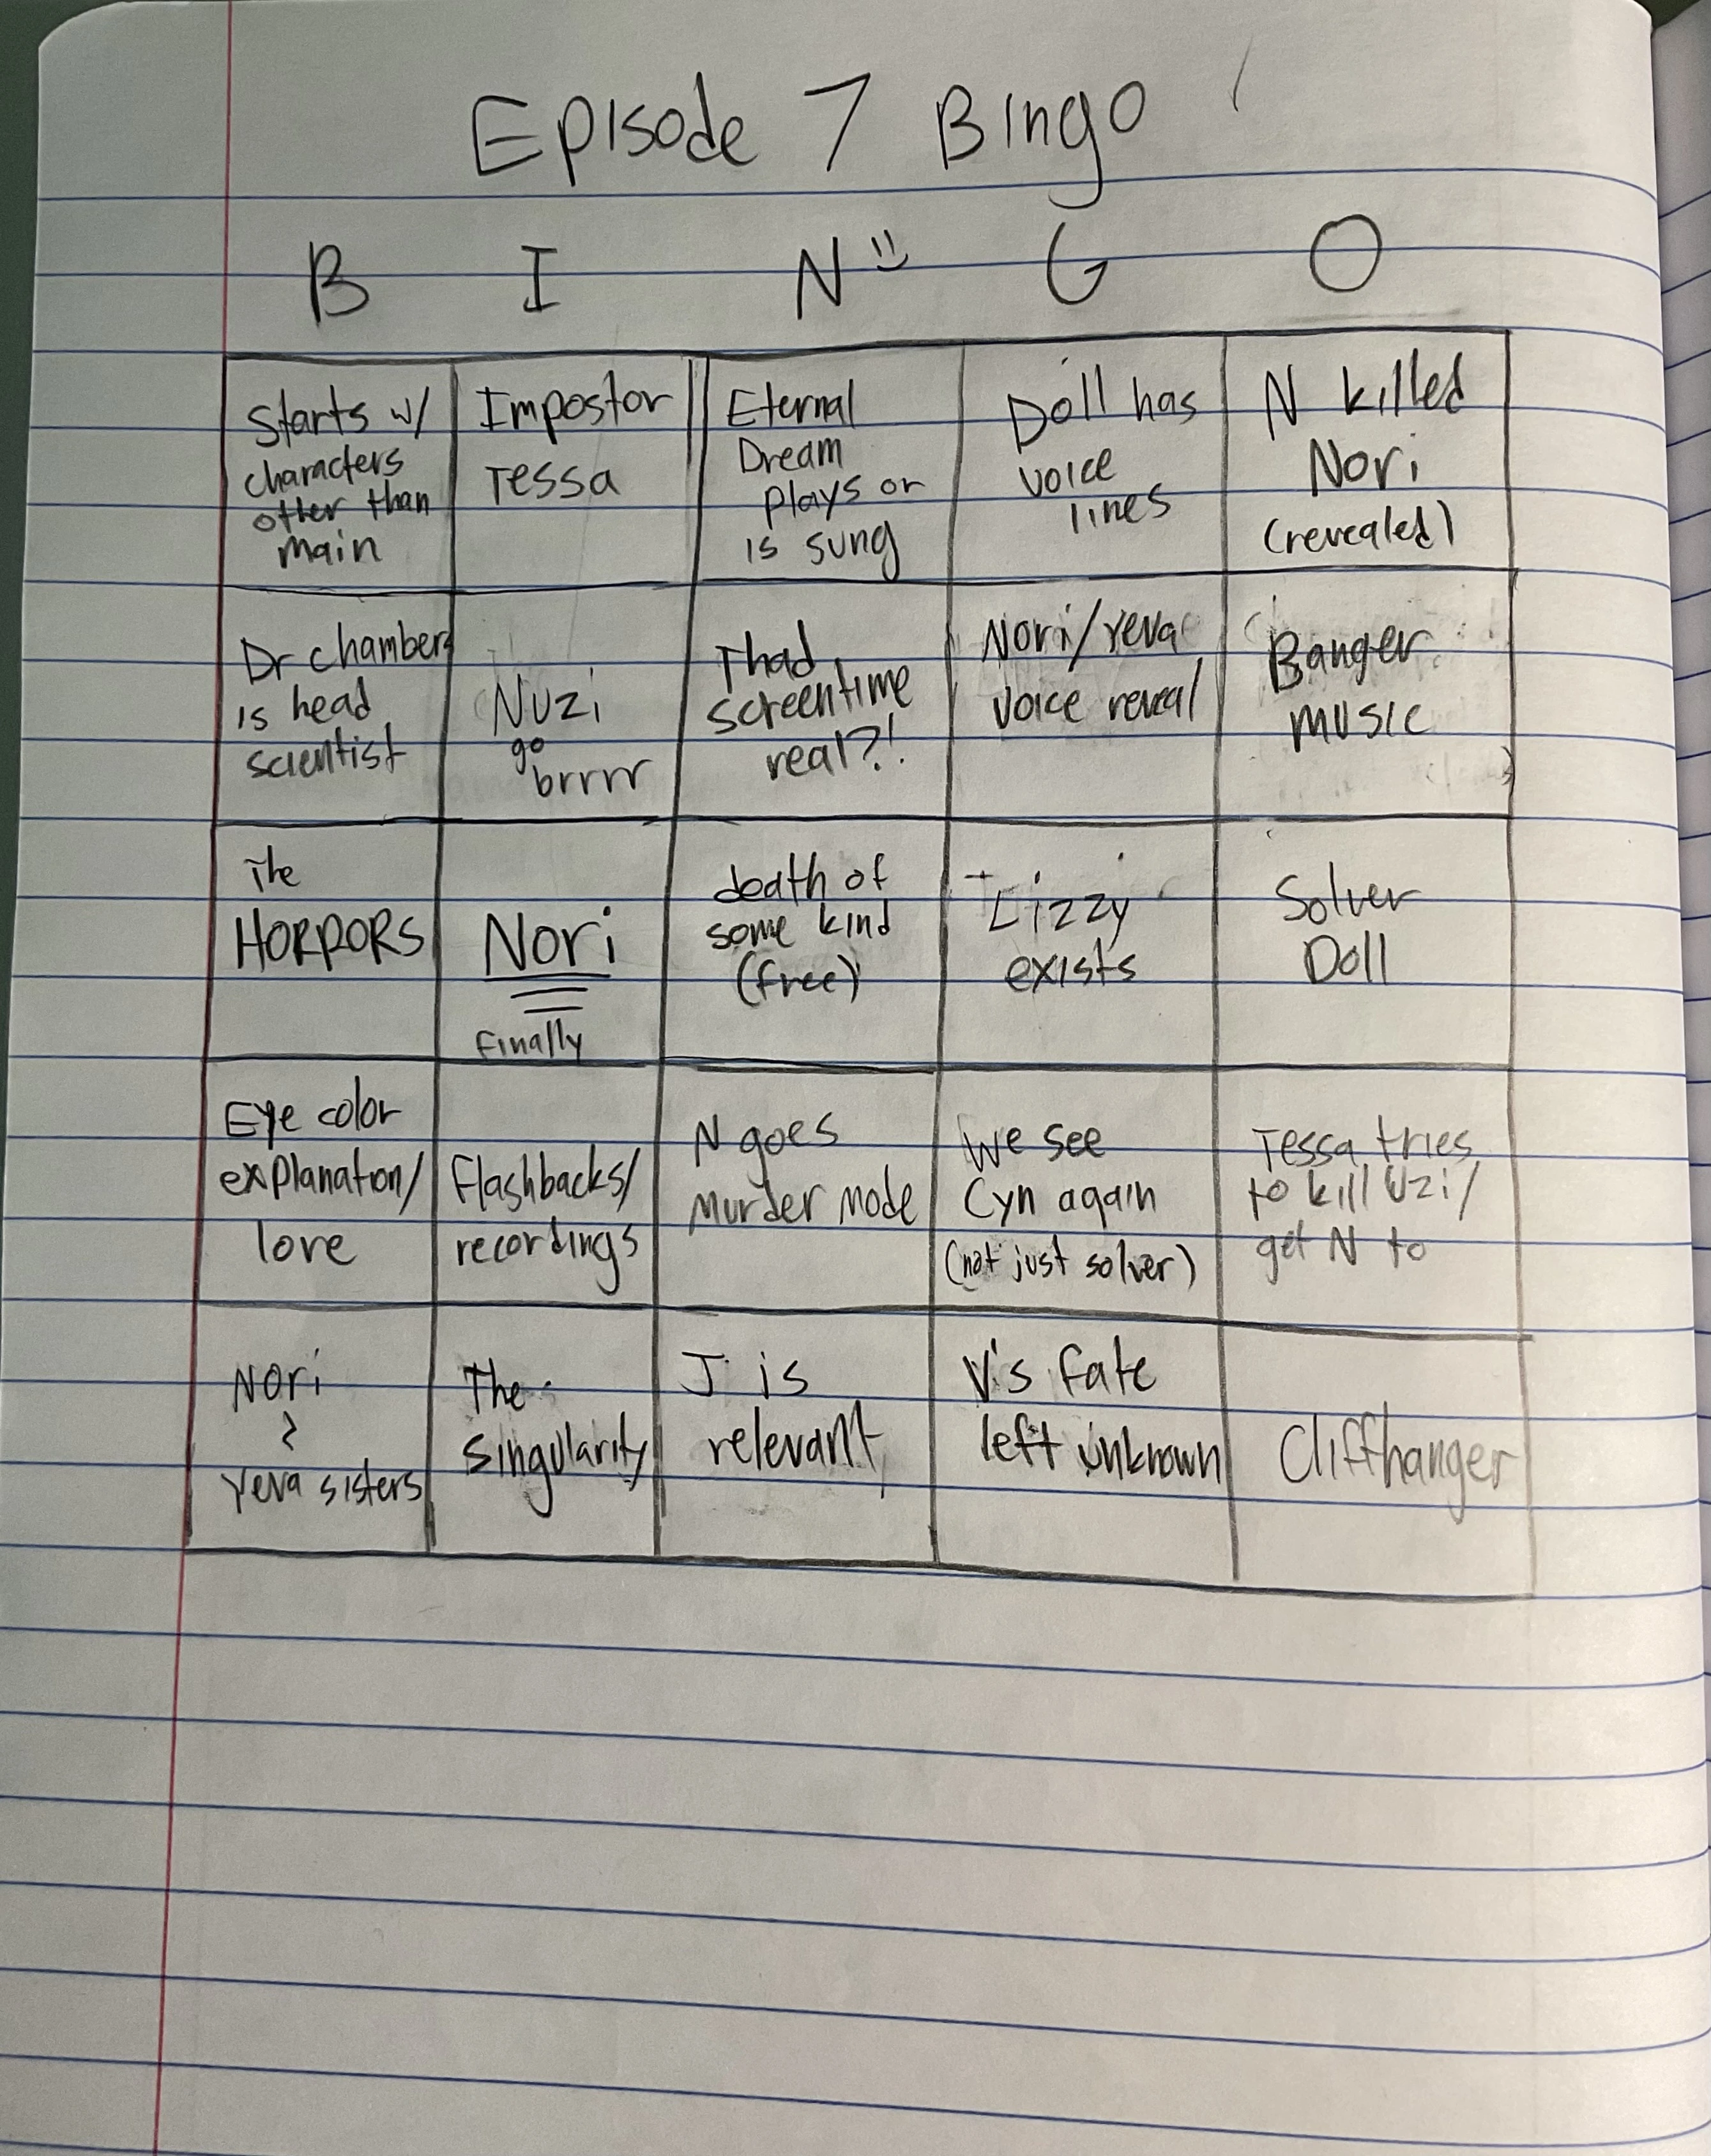 Episode 7 Bingo
B I N G O
Starts w/
characters
other than
main
Impostor
Tessa
Eternal
Dream
plays or
is sung
Doll has
voice
lines
N killed
Nori
(revealed)
Dr chambers
is head
scientist
Nuzi
go
brrrr
Thad
screentime
real?!
Nori/Yeva
voice reveal
Banger
music
The
HORRORS
Nori
Finally
death of
some kind
(free)
Lizzy
exists
Solver
Doll
Eye color
explanation/
love
Flashbacks/
recordings
N goes
Murder mode
We see
Cyn again
(not just solver)
Tessa tries
to kill Uzi/
get N to
Nori
&
Yeva sisters
The
Singularity
J is
relevant
V's fate
left unknown
Cliffhanger